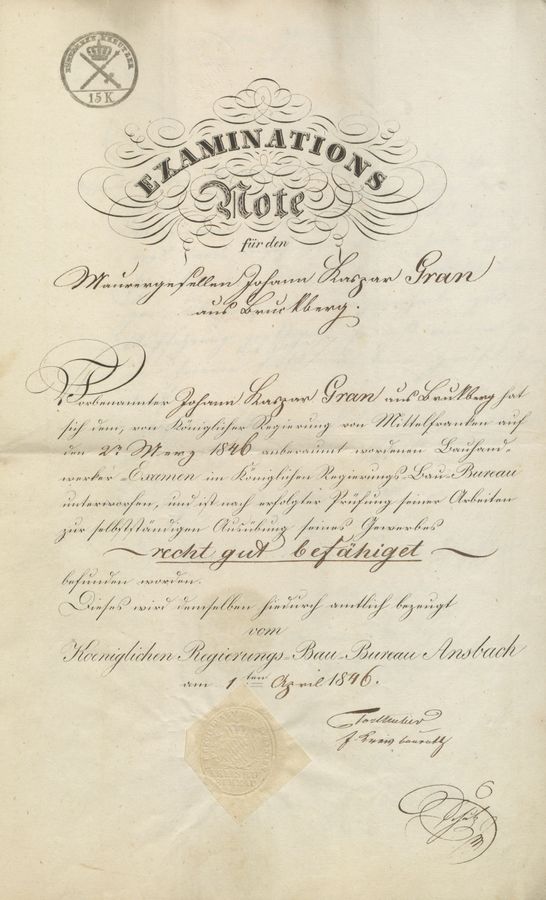 FÜNFZEHN KREUTZER
15 K
EXAMINATIONS
Note
für den
Maurergesellen Johann Kaspar Gran
aus Bruckberg.
Vorbenannter Johann Kaspar Gran aus Brukberg hat
sich dem, von Königlicher Regierung von Mittelfranken auf
den 2n Merz 1846 anberaumt wordenen Bauhand-
werker-Examen im Königlichen Regierungs-Bau-Bureau
unterworfen, und ist nach erfolgter Prüfung seiner Arbeiten
zur selbstständigen Ausübung seines Gewerbes
recht gut befähiget
befunden worden.
Dieses wird demselben hiedurch amtlich bezeugt
vom
Koeniglichen Regierungs-Bau-Bureau Ansbach
am 1ten April 1846.